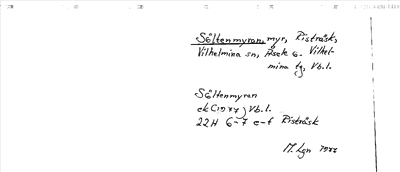 Såltenmyran, myr, Risträsk,
Vilhelmina sn, Åsele o. Vilhel-
mina tg, Vb.l.
Såltenmyran
ek (1977) Vb.l.
22H 6-7 e-f Risträsk
M. Lgn 1977